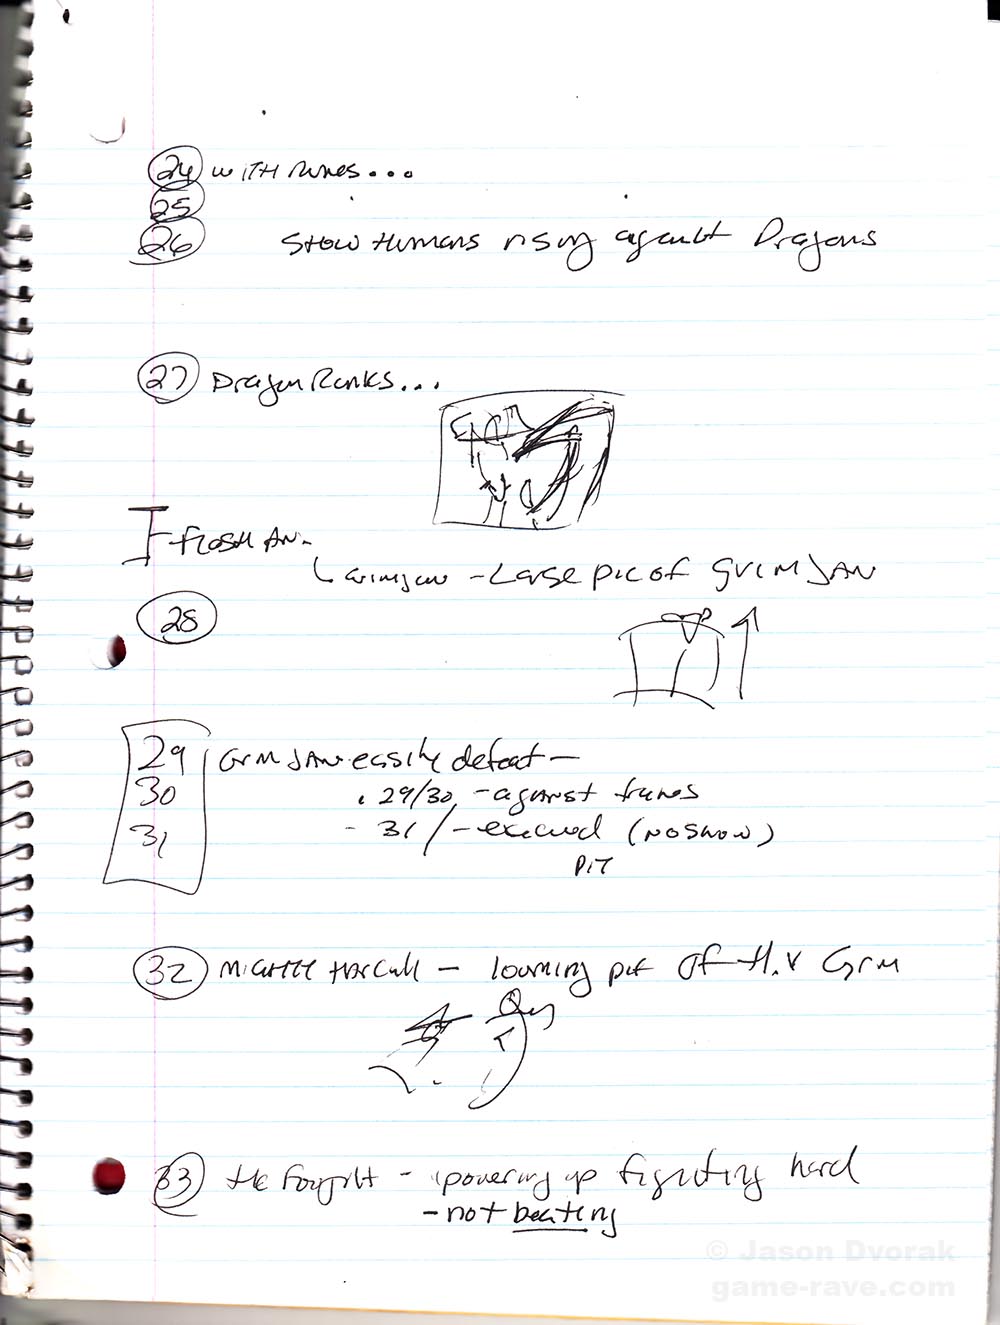 24 WITH RUNES...
25
26 SHOW HUMANS rising against Dragons
27 Dragon Ranks...
FLASH AN.
Grimjaw - Large pic of GRIMJAW
28
29 GrimJAW easily defeat -
30 . 29/30 - against
31 - 31/ - (NO SHOW)
PIT
32 - looming pic OF Grim
33 He Fought - powering up fighting hard
- not beating
© Jason Dvorak
game-rave.com